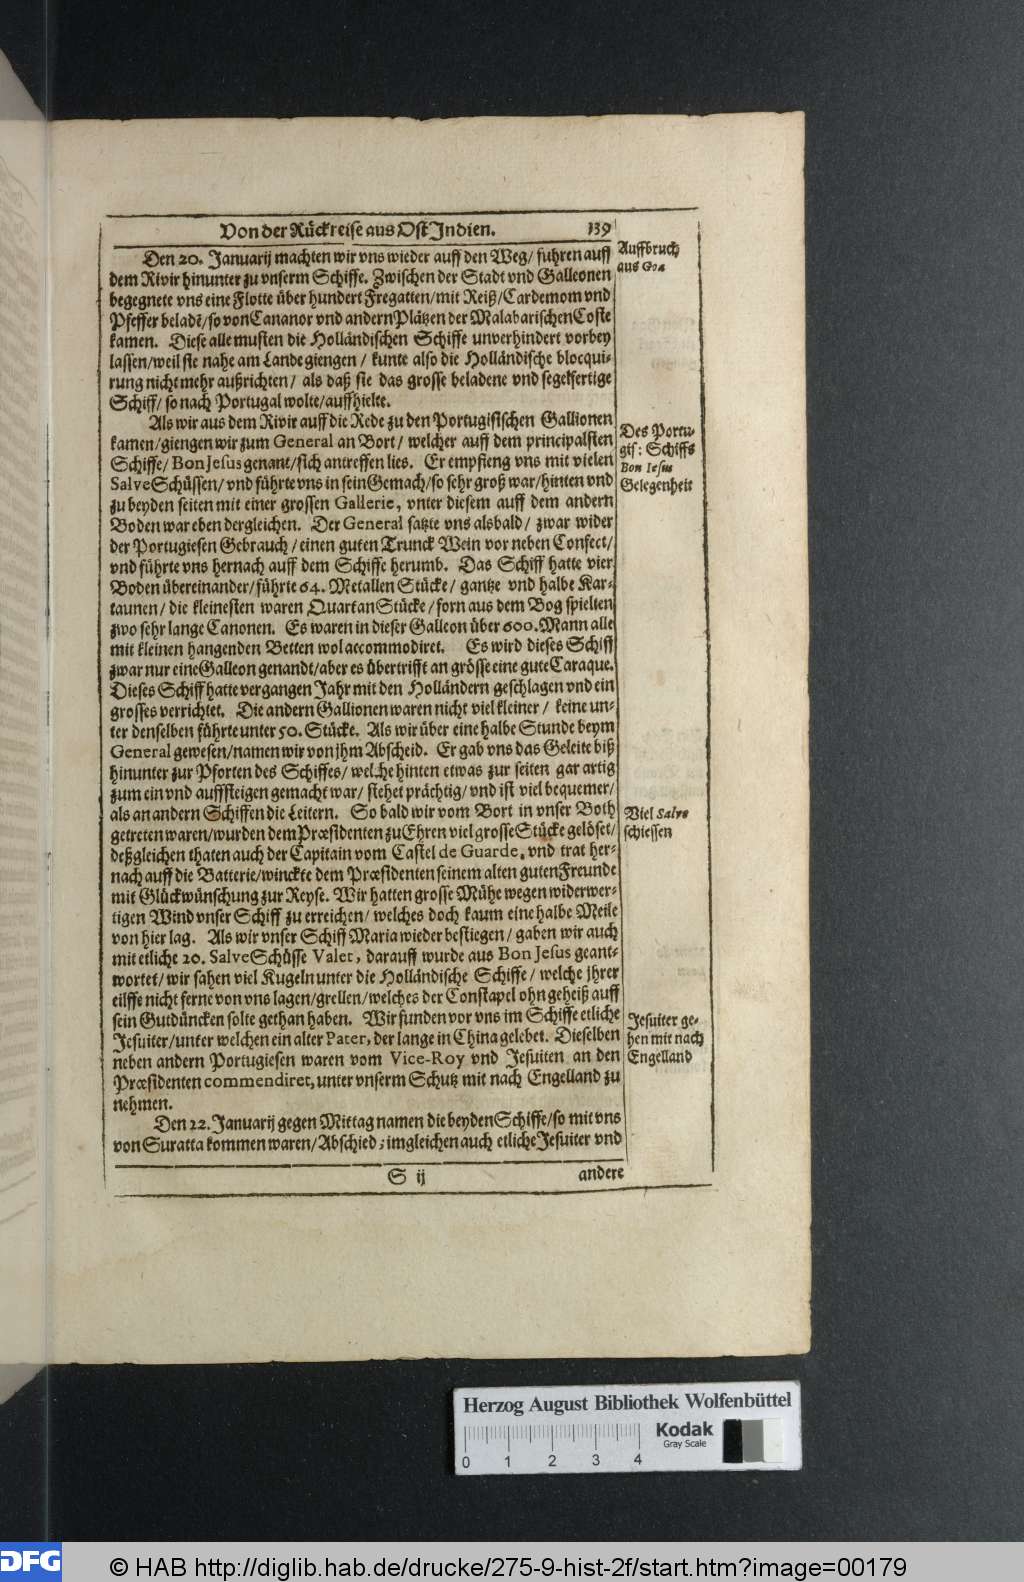 Von der Rückreise aus Ost Indien. 139
Den 20. Januarij machten wir vns wieder auff den Weg/ fuhren auff
dem Rivir hinunter zu vnserm Schiffe. Zwischen der Stadt vnd Galleonen
begegnete vns eine Flotte über hundert Fregatten/mit Reiß/Cardemom vnd
Pfeffer beladẽ/so von Cananor vnd andern Plätzen der Malabarischen Coste
kamen. Diese alle musten die Holländischen Schiffe unverhindert vorbey
lassen/weil sie nahe am Lande giengen / kunte also die Holländische blocqui-
rung nicht mehr außrichten/ als daß sie das grosse beladene vnd segelfertige
Schiff/ so nach Portugal wolte/auffhielte.
Als wir aus dem Rivir auff die Rede zu den Portugisischen Gallionen
kamen/giengen wir zum General an Bort/ welcher auff dem principalsten
Schiffe/ Bon Jesus genant/sich antreffen lies. Er empfieng vns mit vielen
Salve Schüssen/ vnd führte vns in sein Gemach/so sehr groß war/hinten vnd
zu beyden seiten mit einer grossen Gallerie, vnter diesem auff dem andern
Boden war eben dergleichen. Der General satzte vns alsbald/ zwar wider
der Portugiesen Gebrauch/einen guten Trunck Wein vor neben Confect/
vnd führte vns hernach auff dem Schiffe herumb. Das Schiff hatte vier
Boden übereinander/führte 64. Metallen Stücke/ gantze vnd halbe Kar-
taunen/ die kleinesten waren Quartan Stücke/forn aus dem Bog spielten
zwo sehr lange Canonen. Es waren in dieser Galleon über 600. Mann alle
mit kleinen hangenden Betten wol accommodiret. Es wird dieses Schiff
zwar nur eine Galleon genandt/aber es übertrifft an grösse eine gute Caraque.
Dieses Schiff hatte vergangen Jahr mit den Holländern geschlagen vnd ein
grosses verrichtet. Die andern Gallionen waren nicht viel kleiner/ keine un-
ter denselben führte unter 50. Stücke. Als wir über eine halbe Stunde beym
General gewesen/namen wir von jhm Abscheid. Er gab vns das Geleite biß
hinunter zur Pforten des Schiffes/ welche hinten etwas zur seiten gar artig
zum ein vnd auffsteigen gemacht war/ stehet prächtig/ vnd ist viel bequemer/
als an andern Schiffen die Leitern. So bald wir vom Bort in unser Both
getreten waren/wurden dem Præsidenten zu Ehren viel grosse Stücke gelöset/
deßgleichen thaten auch der Capitain vom Castel de Guarde, vnd trat her-
nach auff die Batterie/winckte dem Præsidenten seinem alten guten Freunde
mit Glückwünschung zur Reyse. Wir hatten grosse Mühe wegen widerwer-
tigen Wind vnser Schiff zu erreichen/ welches doch kaum eine halbe Meile
von hier lag. Als wir vnser Schiff Maria wieder bestiegen/ gaben wir auch
mit etliche 20. Salve Schüsse Valet, darauff wurde aus Bon Jesus geant-
wortet/ wir sahen viel Kugeln unter die Holländische Schiffe/ welche jhrer
eilffe nicht ferne von vns lagen/grellen/welches der Constapel ohn geheiß auff
sein Gutdüncken solte gethan haben. Wir funden vor vns im Schiffe etliche
Jesuiter/unter welchen ein alter Pater, der lange in China gelebet. Dieselben
neben andern Portugiesen waren vom Vice-Roy vnd Jesuiten an den
Præsidenten commendiret, unter vnserm Schutz mit nach Engelland zu
nehmen.
Den 22. Januarij gegen Mittag namen die beyden Schiffe/so mit vns
von Suratta kommen waren/Abschied; imgleichen auch etliche Jesuiter vnd
S ij andere
Auffbruch
aus Goa
Des Portu-
gis: Schiffs
Bon Iesus
Gelegenheit
Viel Salve
schiessen
Jesuiter ge-
hen mit nach
Engelland
Herzog August Bibliothek Wolfenbüttel
Kodak
Gray Scale
0 1 2 3 4
DFG © HAB http://diglib.hab.de/drucke/275-9-hist-2f/start.htm?image=00179